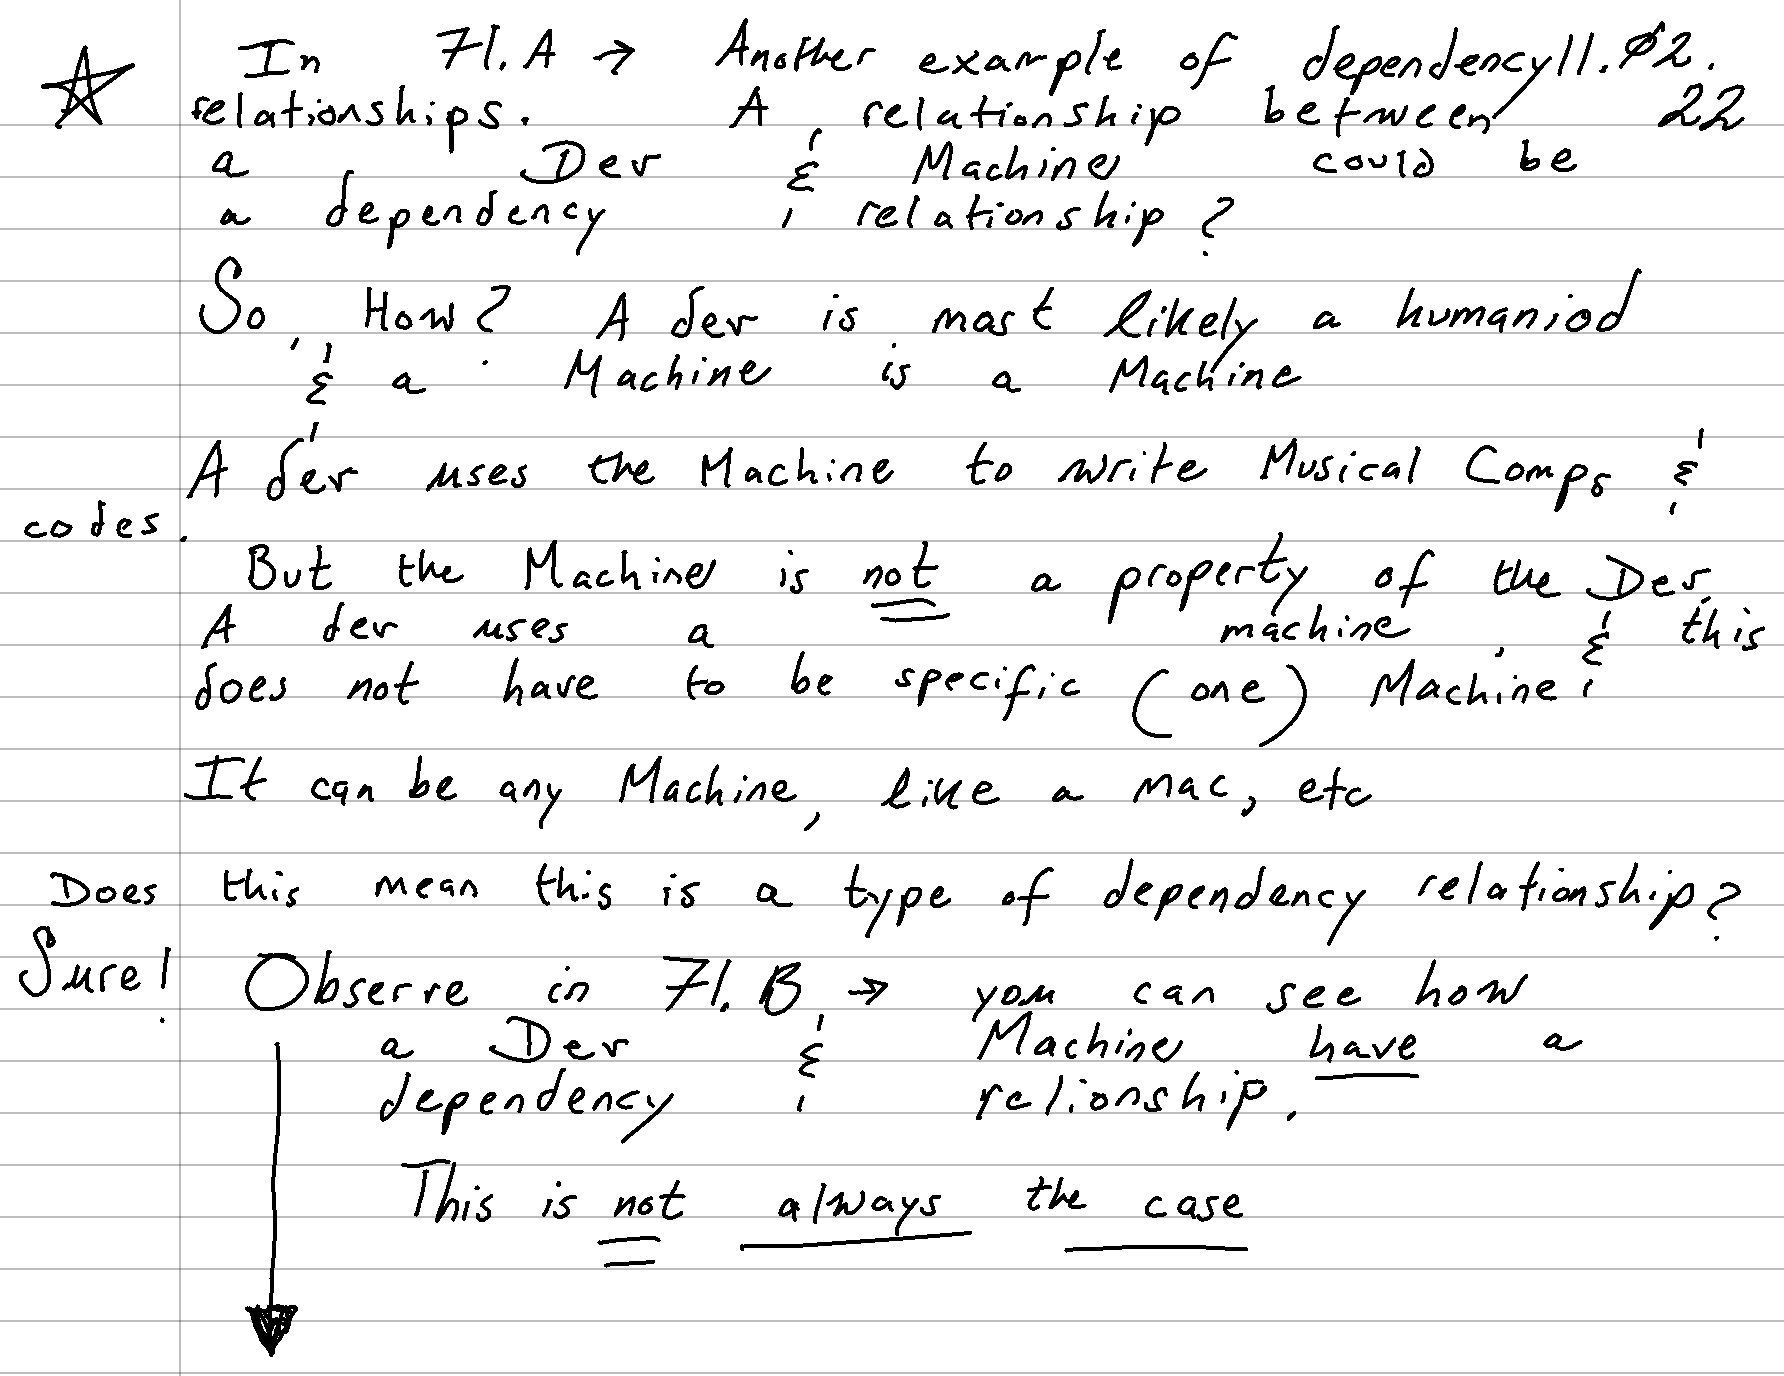 In 71.A → Another example of dependency 11.02.
relationships. A relationship between 22
a Dev & Machine could be
a dependency relationship?
So, How? A dev is most likely a humaniod
& a Machine is a Machine
A dev uses the Machine to write Musical Comps &
codes.
But the Machine is not a property of the Dev.
A dev uses a machine, & this
does not have to be specific (one) Machine
It can be any Machine, like a mac, etc
Does this mean this is a type of dependency relationship?
Sure! Observe in 71.B → you can see how
a Dev & Machine have a
dependency relionship.
This is not always the case